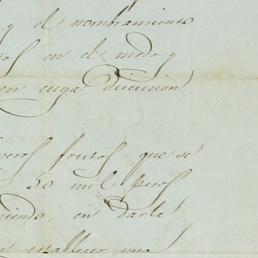 y el nombramiento
en el modo y
en cuya direccion
frutos que se
50 mil pesos
en darle
establecer una